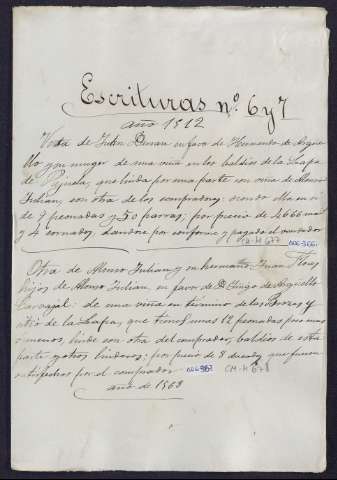 Escrituras nº 6 y 7
año 1512
Venta de Julián Durán en favor de Hernando de Argüe
llo y su muger de una viña en los baldíos de la Zafa
de Pejuela, que linda por una parte con viña de Alonso
Julián, con otra de los compradores, siendo
de 9 peonadas y 50 parras; por precio de 4666 mrs
y 4 cornados, dandose por conforme y pagado el vendedor
CM-H 677 006-366
Otra de Alonso Julian y su hermano Juan Flores
hijos de Alonso Julián, en favor de Dº Diego de Argüello
Carvajal: de una viña en término de las Brozas y
sitio de la Zafra, que tiene unas 12 peonadas poco mas
o menos, linda con otra del comprador, baldíos de esta
parte y otros linderos: por precio de 8 ducados que fueron
satisfechos por el comprador 006-367 CM-H 678
año de 1568